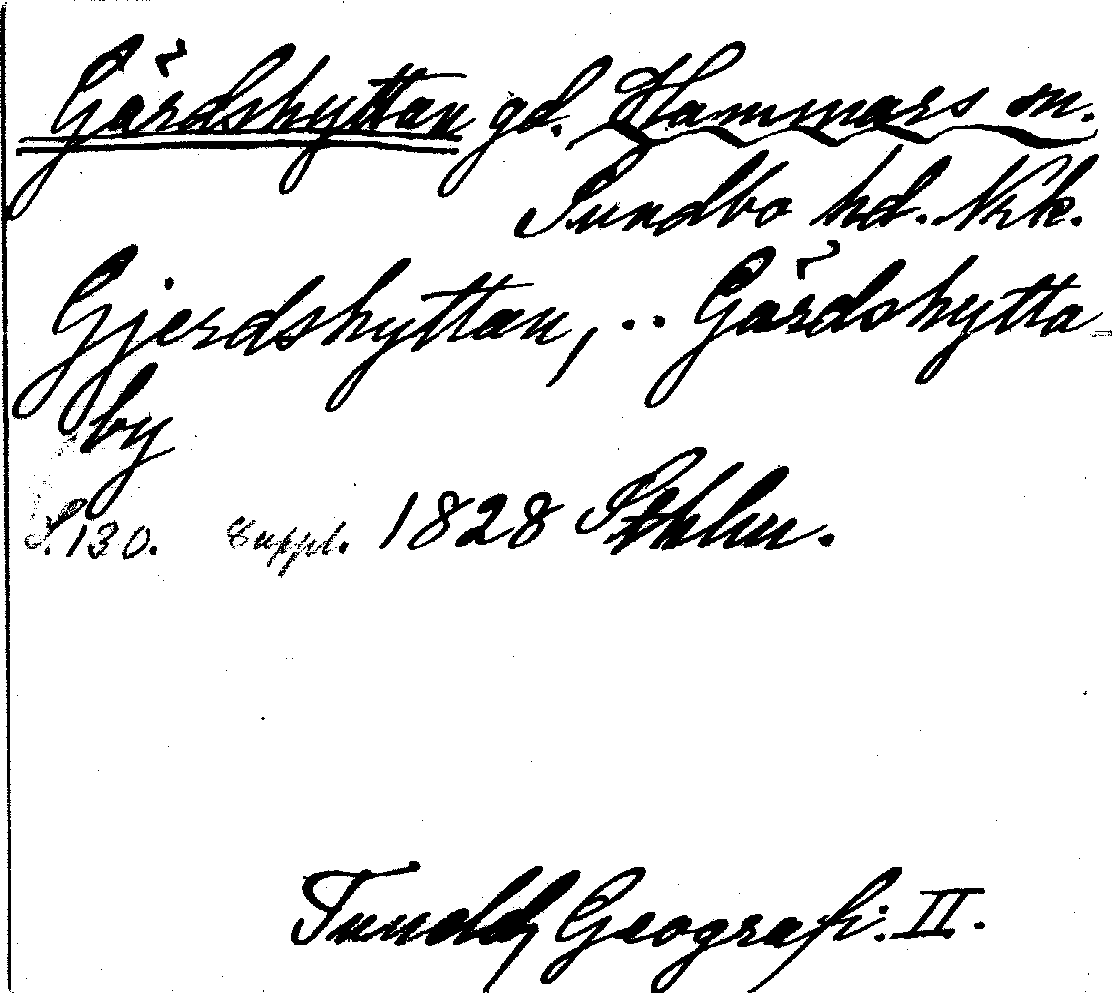 Gärdshyttan gd. Hammars sn.
Sundbo hd. Nrk.
Gjerdshyttan, .. Gärdshytta
by
S. 130. Suppl. 1828 Sthlm.
Tuneld, Geografi. II.